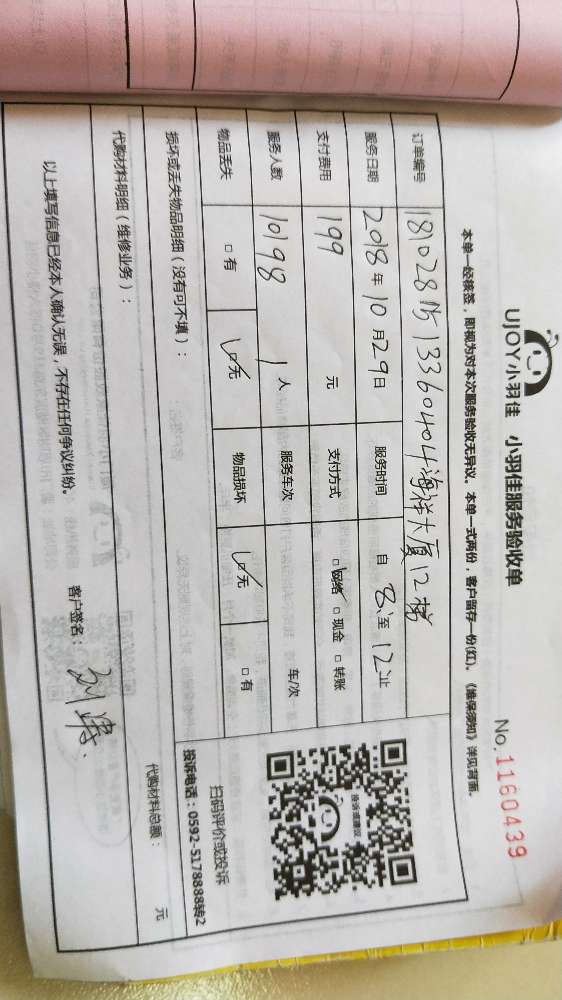 UJOY小羽佳 小羽佳服务验收单
No.1160439
本单一经接签,即视为对本次服务验收无异议。本单一式两份,客户留存一份(红)。《维保须知》详见背面。
订单编号 海洋大厦12楼
服务日期 2018年10月29日 服务时间 自8至12止
支付费用 199元 支付方式 □网络 □现金 □转账
服务人数 10198 1人 服务车次 车/次
物品丢失 □有 □无 物品损坏 □无 □有
投诉或建议
扫码评价或投诉
投诉电话:0592-5178888转2
损坏或丢失物品明细(没有可不填):
代购材料明细(维修业务): 代购材料总额: 元
以上填写信息已经本人确认无误,不存在任何争议纠纷。 客户签名: